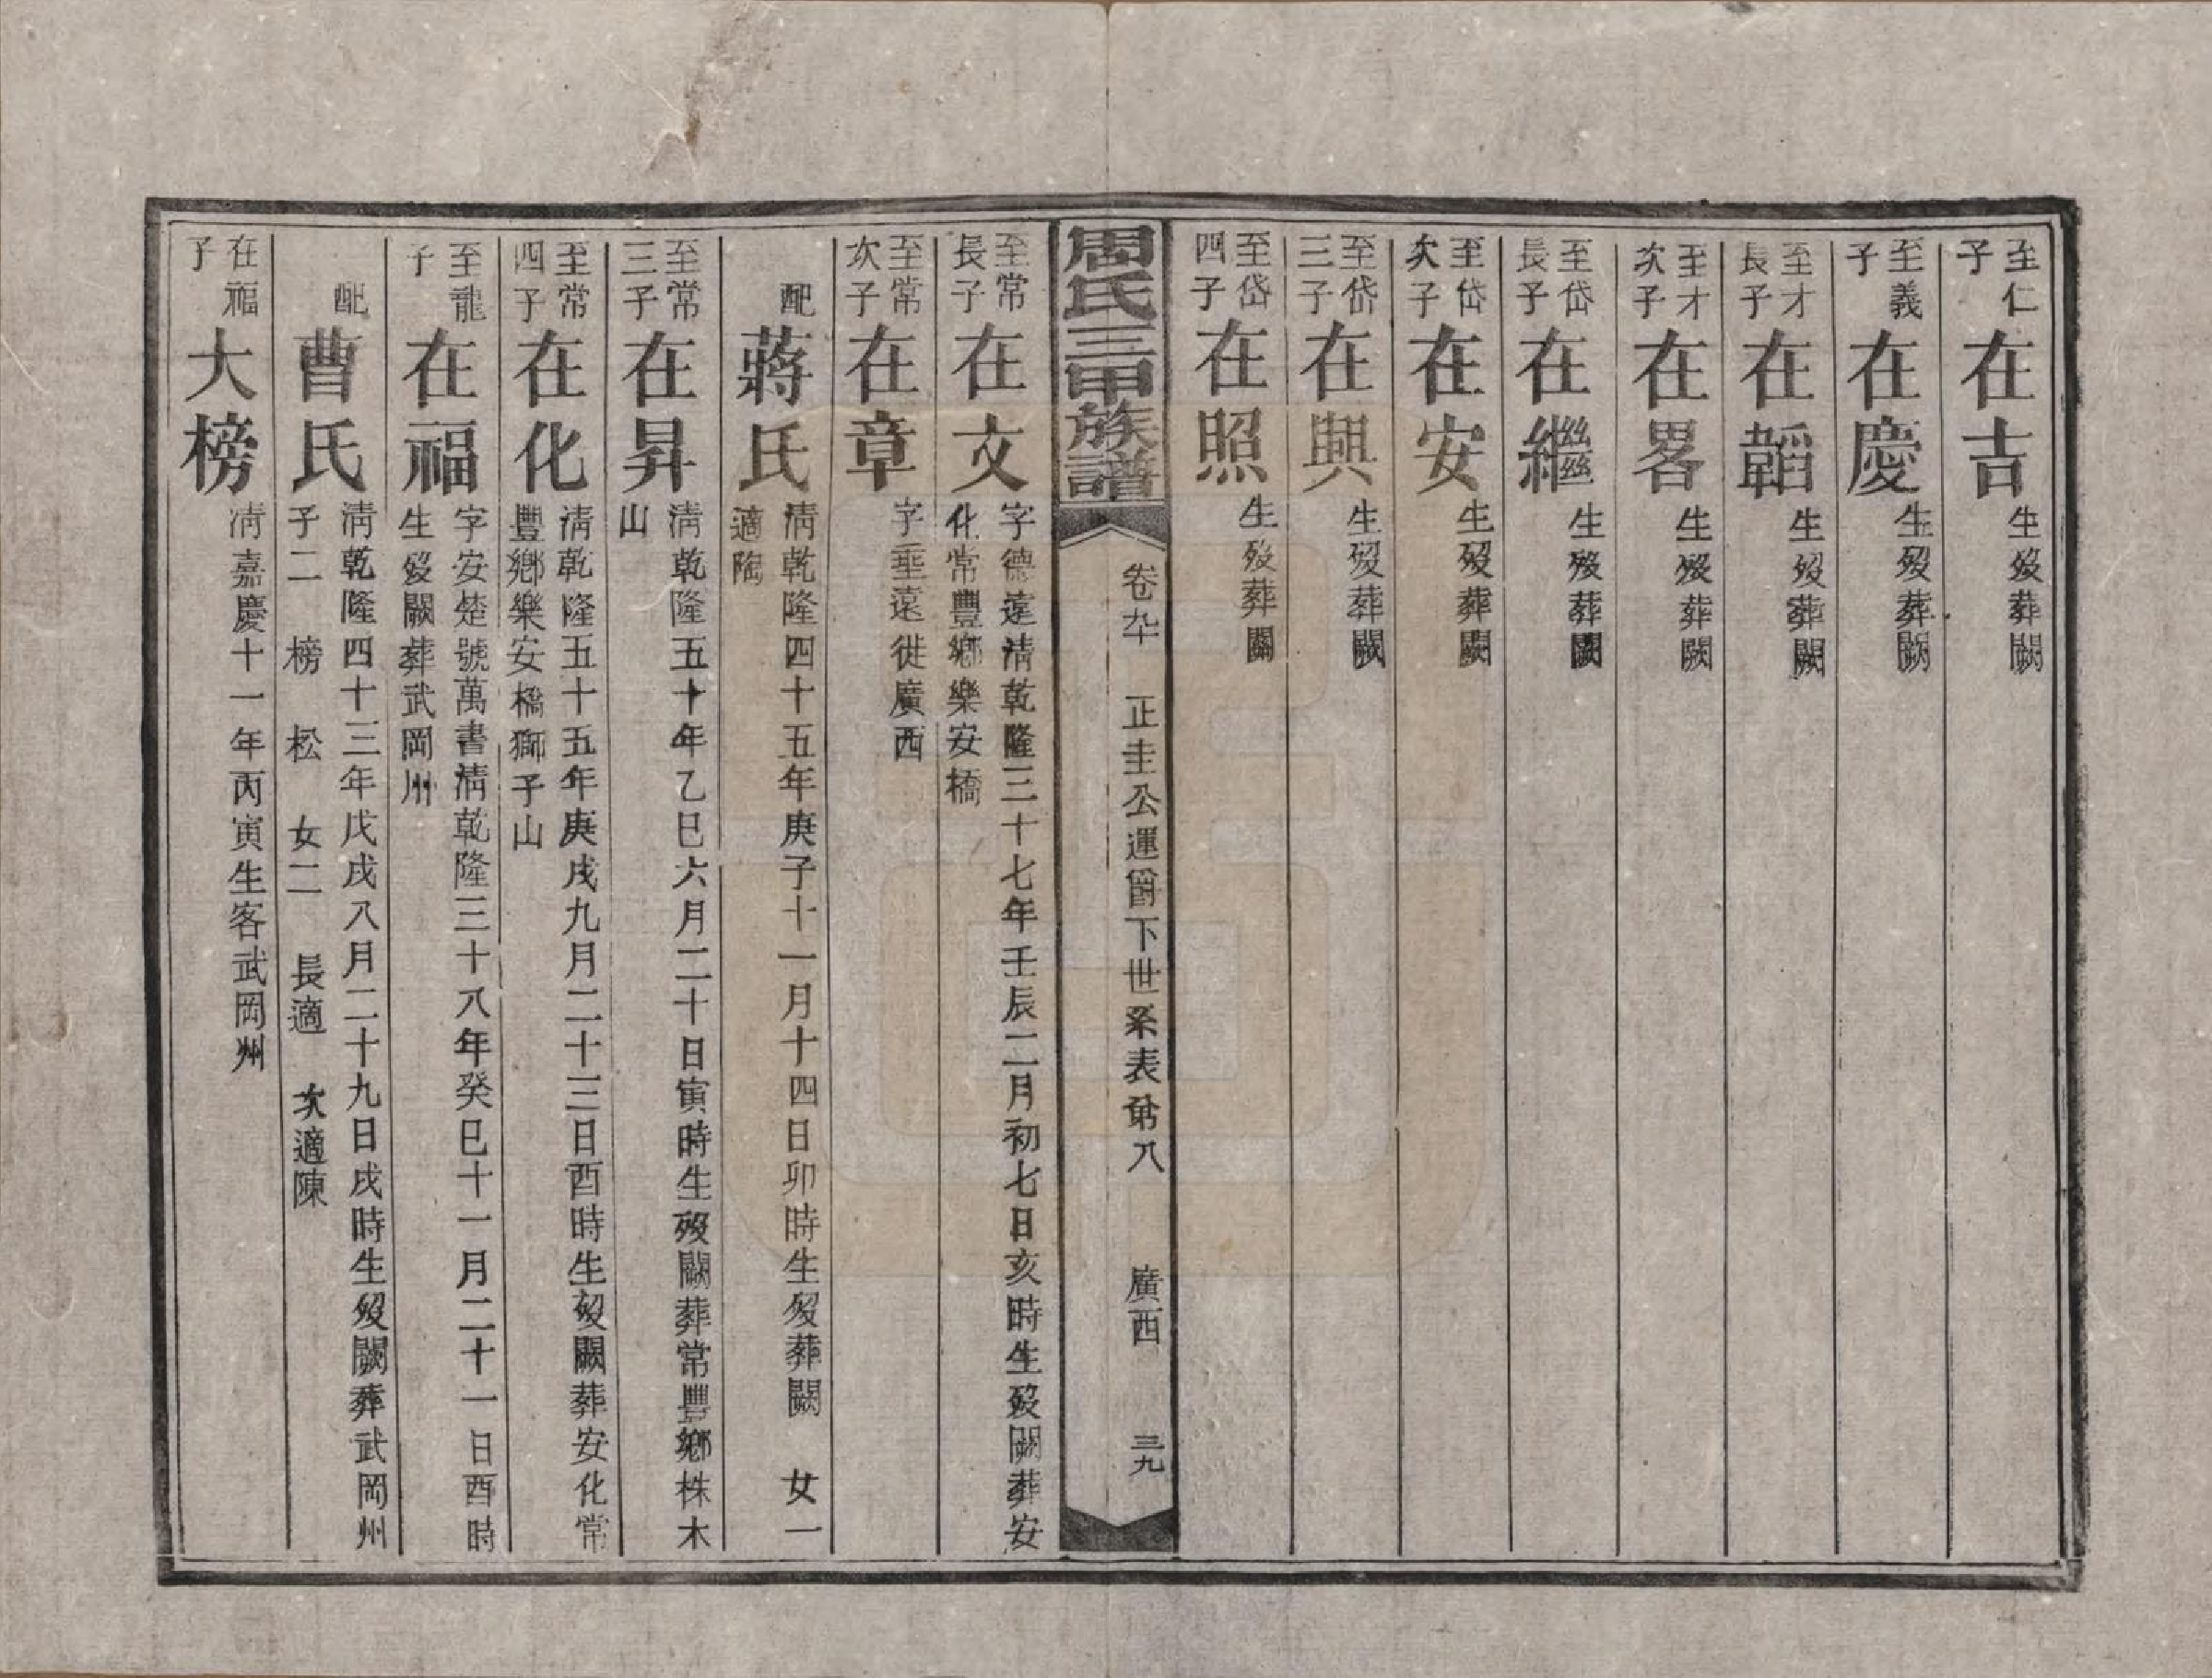 至仁子 在吉 生歿葬闕
至義子 在慶 生歿葬闕
至才長子 在韜 生歿葬闕
至才次子 在畧 生歿葬闕
至岱長子 在繼 生歿葬闕
至岱次子 在安 生歿葬闕
至岱三子 在興 生歿葬闕
至岱四子 在照 生歿葬闕
周氏三甲族譜 卷九十 正圭公運曾下世系表弟八 廣西 三九
至常長子 在文 字德遠清乾隆三十七年壬辰二月初七日亥時生歿闕葬安
化常豐鄉樂安橋
至常次子 在章 字垂遠徙廣西
配 蔣氏 清乾隆四十五年庚子十一月十四日卯時生歿葬闕 女一
適陶
至常三子 在昇 清乾隆五十年乙巳六月二十日寅時生歿闕葬常豐鄉株木
山
至常四子 在化 清乾隆五十五年庚戌九月二十三日酉時生歿闕葬安化常
豐鄉樂安橋獅子山
至龍子 在福 字安楚號萬書清乾隆三十八年癸巳十一月二十一日酉時
生歿闕葬武岡州
配 曹氏 清乾隆四十三年戊戌八月二十九日戌時生歿闕葬武岡州
子二 榜 松 女二 長適 次適陳
在福子 大榜 清嘉慶十一年丙寅生客武岡州